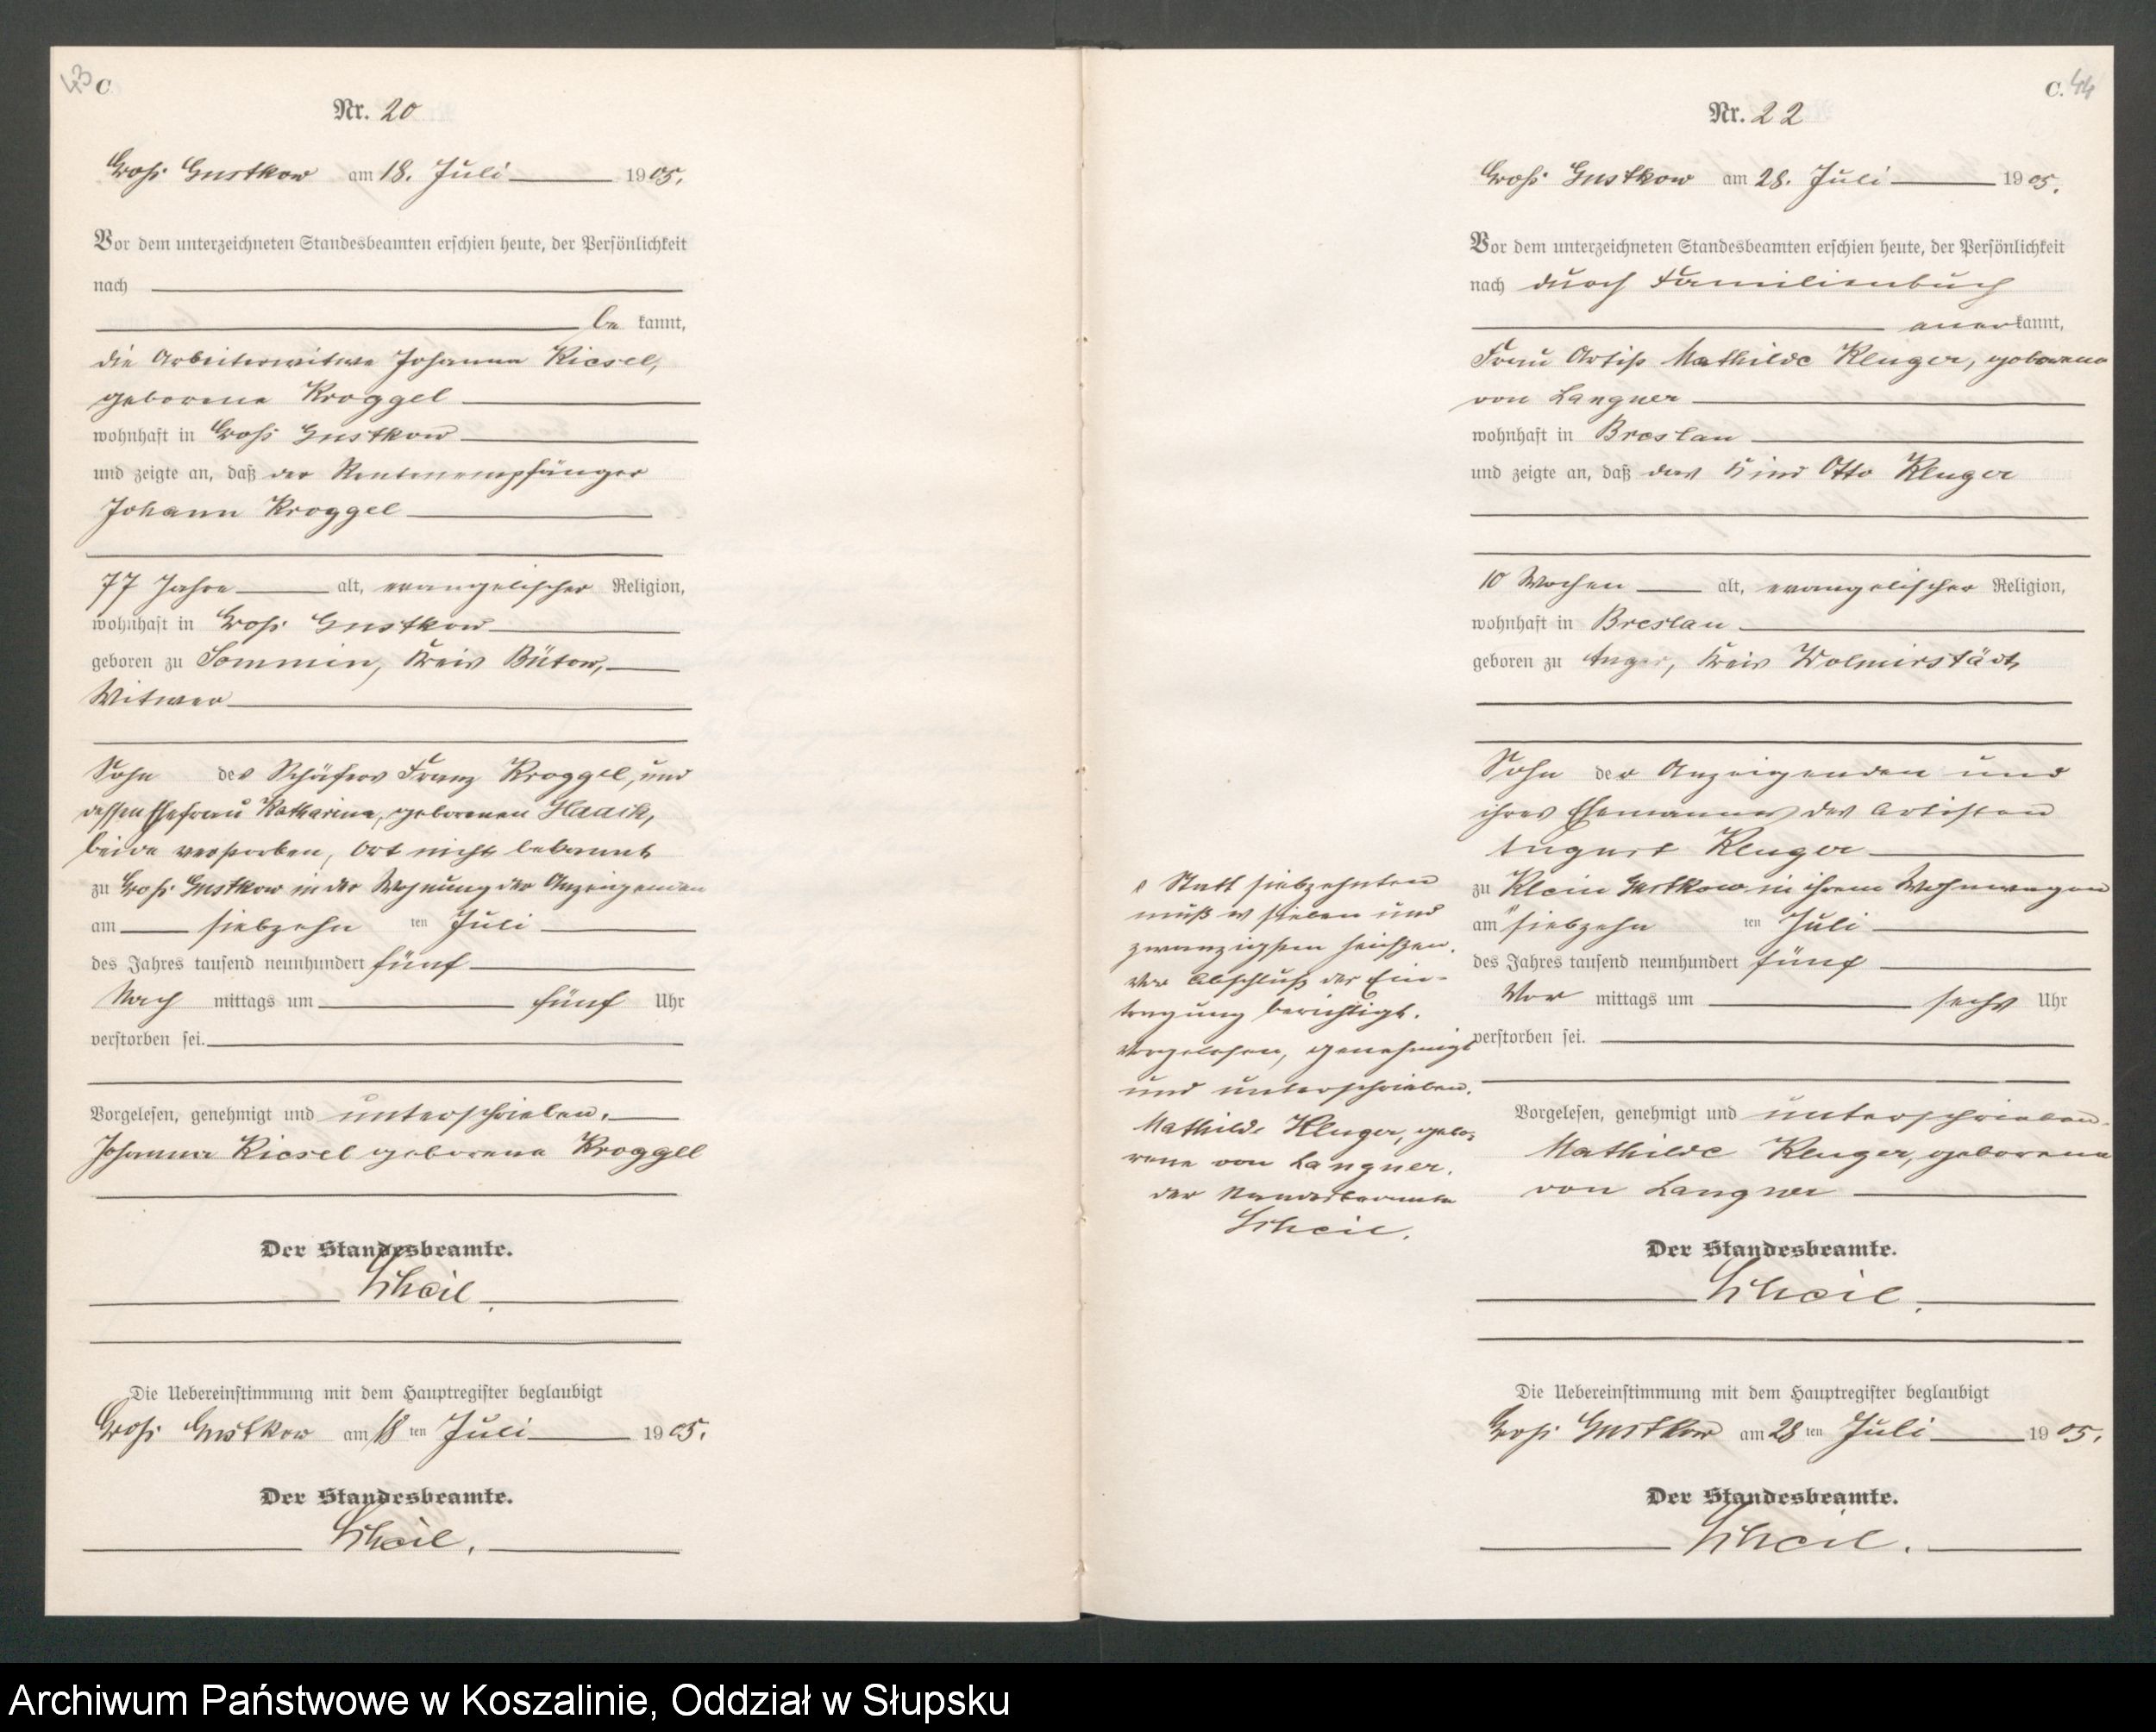 43 C
Nr. 20
Groß Gustkow am 18. Juli 1905.
Vor dem unterzeichneten Standesbeamten erschien heute, der Persönlichkeit
nach
be kannt,
die Arbeiterwitwe Johanna Kiesel,
geborene Kroggel
wohnhaft in Groß Gustkow
und zeigte an, daß der Rentenempfänger
Johann Kroggel
77 Jahre alt, evangelischer Religion,
wohnhaft in Groß Gustkow
geboren zu Sommin, Kreis Bütow,
Witwer
Sohn des Schäfers Franz Kroggel, und
dessen Ehefrau Katharina, geborenen Haack,
beide verstorben, Ort nicht bekannt
zu Groß Gustkow in der Wohnung der Anzeigenden
am siebzehn ten Juli
des Jahres tausend neunhundert fünf
Nach mittags um fünf Uhr
verstorben sei.
Vorgelesen, genehmigt und unterschrieben.
Johanna Kiesel geborene Kroggel
Der Standesbeamte.
Scheil.
Die Uebereinstimmung mit dem Hauptregister beglaubigt
Groß Gustkow am 18 ten Juli 1905.
Der Standesbeamte.
Scheil.
C. 44
Nr. 22
Groß Gustkow am 28. Juli 1905.
Vor dem unterzeichneten Standesbeamten erschien heute, der Persönlichkeit
nach durch Familienbuch
anerkannt,
Frau Artist Mathilde Kluger, geborene
von Langner
wohnhaft in Breslau
und zeigte an, daß das Kind Otto Kluger
10 Wochen alt, evangelischer Religion,
wohnhaft in Breslau
geboren zu Anger, Kreis Wolmirstädt
Sohn der Anzeigenden und
ihres Ehemannes des Artisten
August Kluger
zu Klein Gustkow in ihrem Wohnwagen
am siebzehn ten Juli
des Jahres tausend neunhundert fünf
Vor mittags um sechs Uhr
verstorben sei.
Vorgelesen, genehmigt und unterschrieben.
Mathilde Kluger, geborene
von Langner
Der Standesbeamte.
Scheil.
Die Uebereinstimmung mit dem Hauptregister beglaubigt
Groß Gustkow am 28 ten Juli 1905.
Der Standesbeamte.
Scheil.
Statt siebzehnten
muß es sieben und
zwanzigsten heißen.
Vor Abschluß der Ein-
tragung berichtigt.
Vorgelesen, genehmigt
und unterschrieben.
Mathilde Kluger, gebo-
rene von Langner.
der Standesbeamte
Scheil.
Archiwum Państwowe w Koszalinie, Oddział w Słupsku